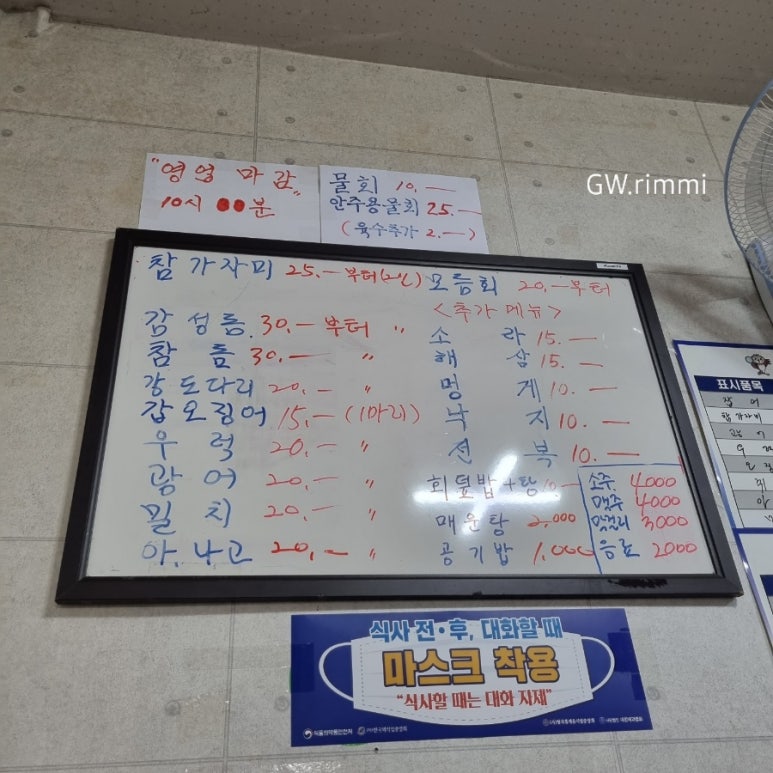 GW.rimmi
"영업 마감"
10시 분
물회 10.—
안주용물회 25.—
(육수추가 2.—)
참 가자미 25.— 부터(2인)
감성돔. 30.— 부터 〃
참 돔 30.— 〃
강도다리 20.— 〃
갑오징어 15.— (1마리)
우 럭 20.— 〃
광 어 20.— 〃
밀 치 20.— 〃
아.나고 20.— 〃
모듬회 20.—부터
<추가 메뉴>
소 라 15.—
해 삼 15.—
멍 게 10.—
낙 지 10.—
전 복 10.—
회덮밥+탕 10.—
매운탕 2,000
공기밥 1,000
소주 4000
맥주 4000
막걸리 3000
음료 2000
표시품목
잡어
참가자미
광어
식사 전·후, 대화할 때
마스크 착용
"식사할 때는 대화 자제"
식품의약품안전처